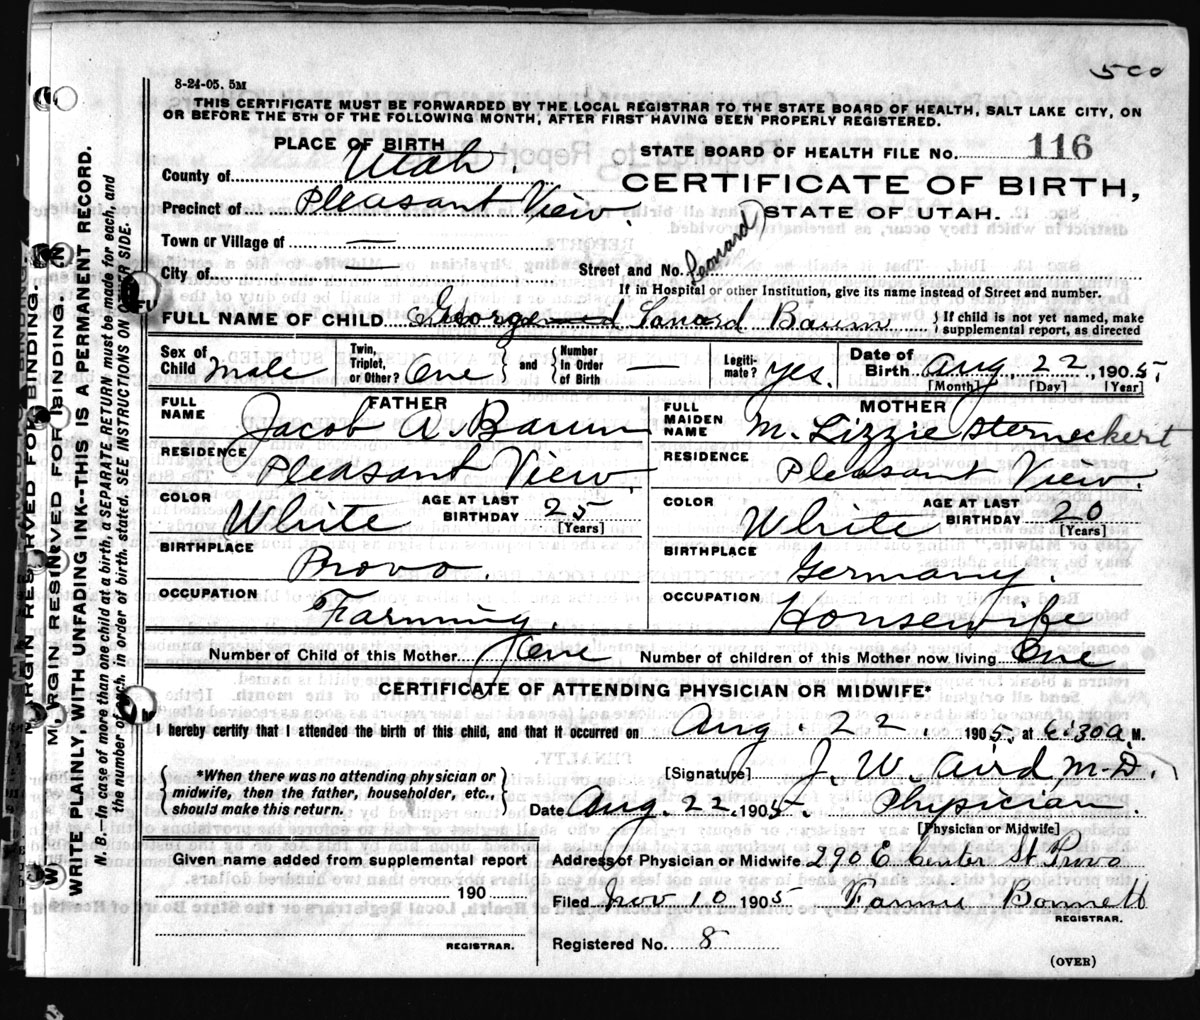 500
8-24-05. 5M
THIS CERTIFICATE MUST BE FORWARDED BY THE LOCAL REGISTRAR TO THE STATE BOARD OF HEALTH, SALT LAKE CITY, ON
OR BEFORE THE 5TH OF THE FOLLOWING MONTH, AFTER FIRST HAVING BEEN PROPERLY REGISTERED.
PLACE OF BIRTH
STATE BOARD OF HEALTH FILE NO. 116
County of Utah.
CERTIFICATE OF BIRTH,
Precinct of Pleasant View
STATE OF UTAH.
Town or Village of —
City of —
Street and No.
Leonard
If in Hospital or other Institution, give its name instead of Street and number.
FULL NAME OF CHILD George Lanard Baum
{If child is not yet named, make supplemental report, as directed
Sex of Child Male
Twin, Triplet, or Other? One and {Number in Order of Birth —
Legitimate? yes.
Date of Birth Aug. 22, 1905.
[Month] [Day] [Year]
FATHER
FULL NAME Jacob A. Baum
RESIDENCE Pleasant View.
COLOR White AGE AT LAST BIRTHDAY 25 [Years]
BIRTHPLACE Provo.
OCCUPATION Farming.
MOTHER
FULL MAIDEN NAME M. Lizzie Sterneckert
RESIDENCE Pleasant View.
COLOR White AGE AT LAST BIRTHDAY 20 [Years]
BIRTHPLACE Germany.
OCCUPATION Housewife
Number of Child of this Mother One Number of children of this Mother now living One
CERTIFICATE OF ATTENDING PHYSICIAN OR MIDWIFE*
I hereby certify that I attended the birth of this child, and that it occurred on Aug. 22 1905, at 6:30 A. M.
{*When there was no attending physician or
midwife, then the father, householder, etc.,
should make this return.}
[Signature] J. W. Aird M-D.
Date Aug. 22, 1905. Physician.
[Physician or Midwife]
Given name added from supplemental report
190
REGISTRAR.
Address of Physician or Midwife 290 E Center St Provo
Filed Nov 10 1905 Bonnett
REGISTRAR.
Registered No. 8
(OVER)
MARGIN RESERVED FOR BINDING.
WRITE PLAINLY, WITH UNFADING INK--THIS IS A PERMANENT RECORD.
N. B.—In case of more than one child at a birth, a SEPARATE RETURN must be made for each, and
the number of each, in order of birth, stated. SEE INSTRUCTIONS ON OTHER SIDE.